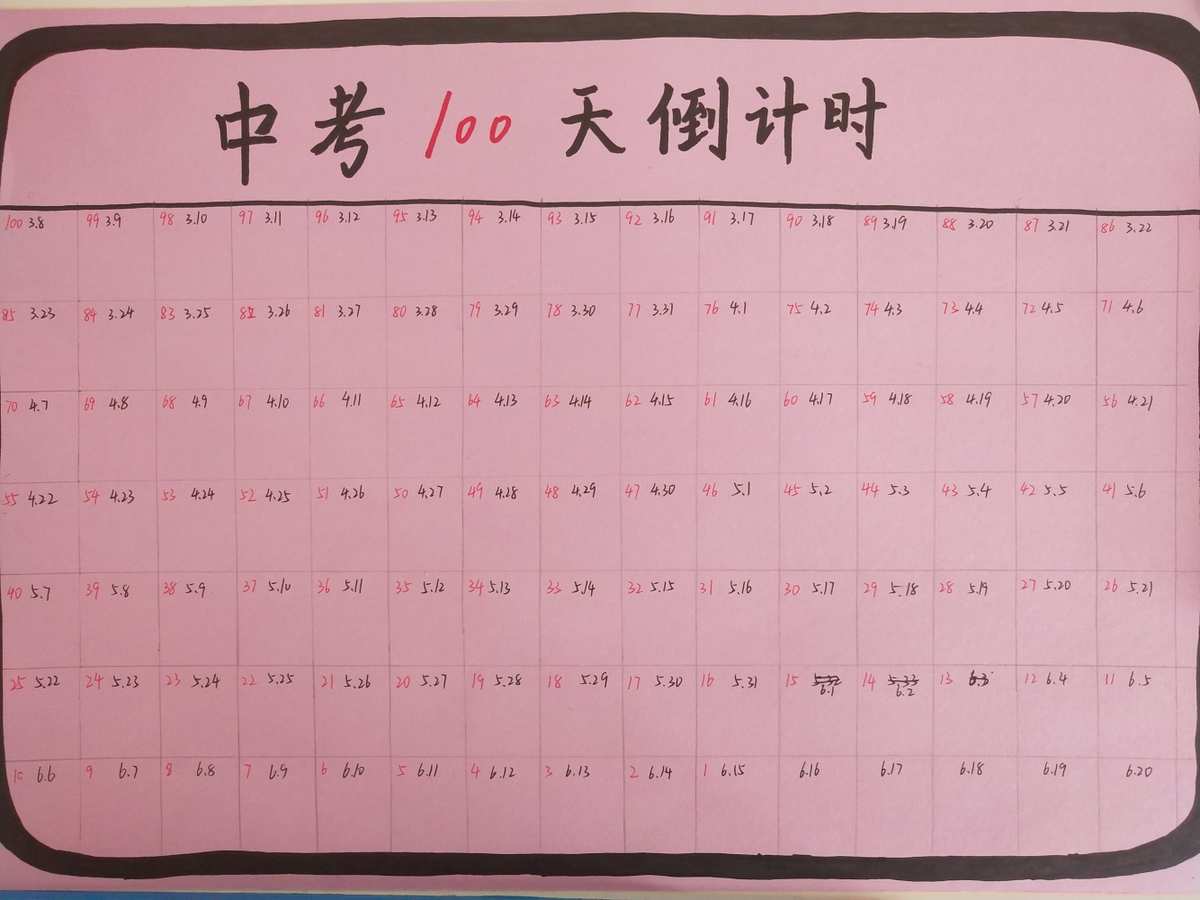 中考100天倒计时
100 3.8 99 3.9 98 3.10 97 3.11 96 3.12 95 3.13 94 3.14 93 3.15 92 3.16 91 3.17 90 3.18 89 3.19 88 3.20 87 3.21 86 3.22
85 3.23 84 3.24 83 3.25 82 3.26 81 3.27 80 3.28 79 3.29 78 3.30 77 3.31 76 4.1 75 4.2 74 4.3 73 4.4 72 4.5 71 4.6
70 4.7 69 4.8 68 4.9 67 4.10 66 4.11 65 4.12 64 4.13 63 4.14 62 4.15 61 4.16 60 4.17 59 4.18 58 4.19 57 4.20 56 4.21
55 4.22 54 4.23 53 4.24 52 4.25 51 4.26 50 4.27 49 4.28 48 4.29 47 4.30 46 5.1 45 5.2 44 5.3 43 5.4 42 5.5 41 5.6
40 5.7 39 5.8 38 5.9 37 5.10 36 5.11 35 5.12 34 5.13 33 5.14 32 5.15 31 5.16 30 5.17 29 5.18 28 5.19 27 5.20 26 5.21
25 5.22 24 5.23 23 5.24 22 5.25 21 5.26 20 5.27 19 5.28 18 5.29 17 5.30 16 5.31 15 6.1 14 6.2 13 6.3 12 6.4 11 6.5
10 6.6 9 6.7 8 6.8 7 6.9 6 6.10 5 6.11 4 6.12 3 6.13 2 6.14 1 6.15 6.16 6.17 6.18 6.19 6.20